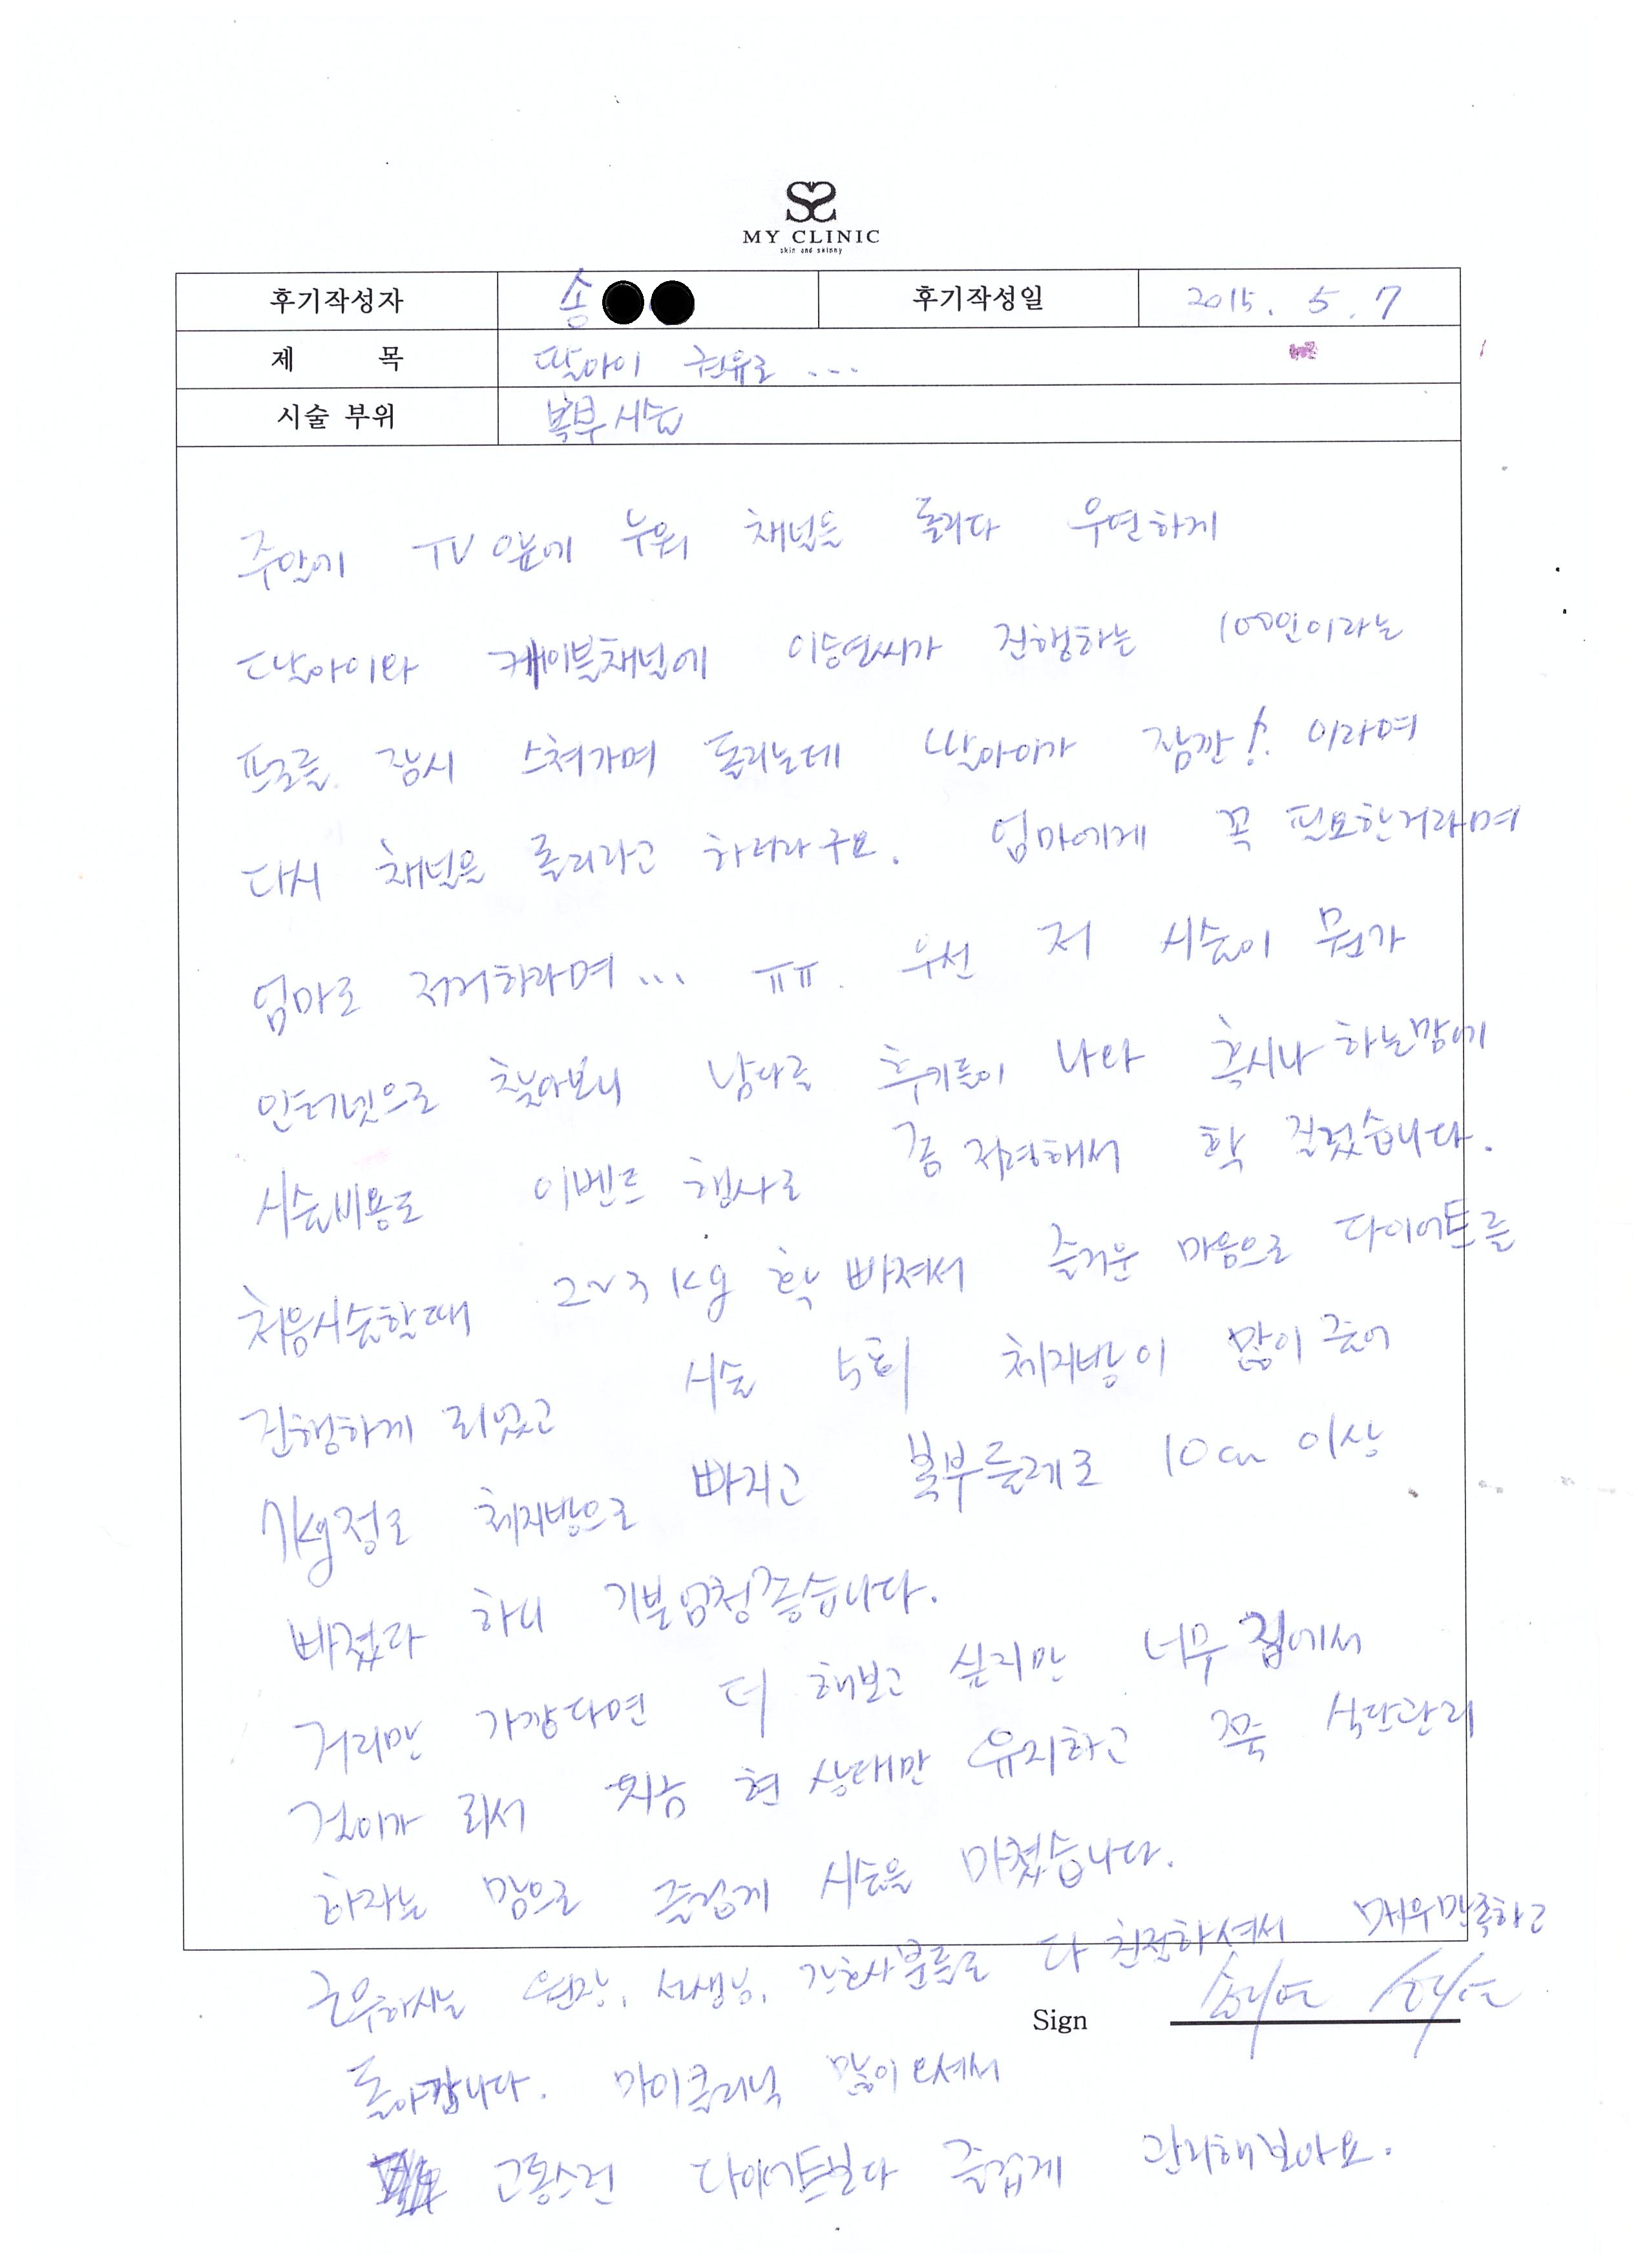 MY CLINIC
skin and skinny
후기작성자 송 후기작성일 2015. 5. 7
제 목 딸아이 권유로 ...
시술 부위 복부시술
주말에 TV앞에 누워 채널을 돌리다 우연하게
딸아이와 케이블채널에 이승연씨가 진행하는 100인이라는
프로를 잠시 스쳐가며 돌리는데 딸아이가 잠깐! 이라며
다시 채널을 돌리라고 하더라구요. 엄마에게 꼭 필요한거라며
엄마도 저거하라며... ㅠㅠ. 우선 저 시술이 뭔가
인터넷으로 찾아보니 남다른 후기들이 나와 혹시나 하는맘에
시술비용도 이벤트 행사로 좀 저렴해서 확 질렀습니다.
처음시술할때 2~3kg 확 빠져서 즐거운 마음으로 다이어트를
진행하게 되었고 시술 5회 체지방이 많이 줄어
7kg정도 체지방으로 빠지고 복부둘레로 10cm 이상
빠졌다 하니 기분엄청좋습니다.
거리만 가깝다면 더 해보고 싶지만 너무 집에서
거리가 되서 지금 현 상태만 유지하고 쭉 식단관리
하자는 맘으로 즐겁게 시술을 마쳤습니다.
근무하시는 원장, 선생님, 간호사분들도 다 친절하셔서 매우만족하고
Sign
돌아갑니다. 마이클리닉 많이오셔서
고통스런 다이어트보다 즐겁게 관리해보아요.